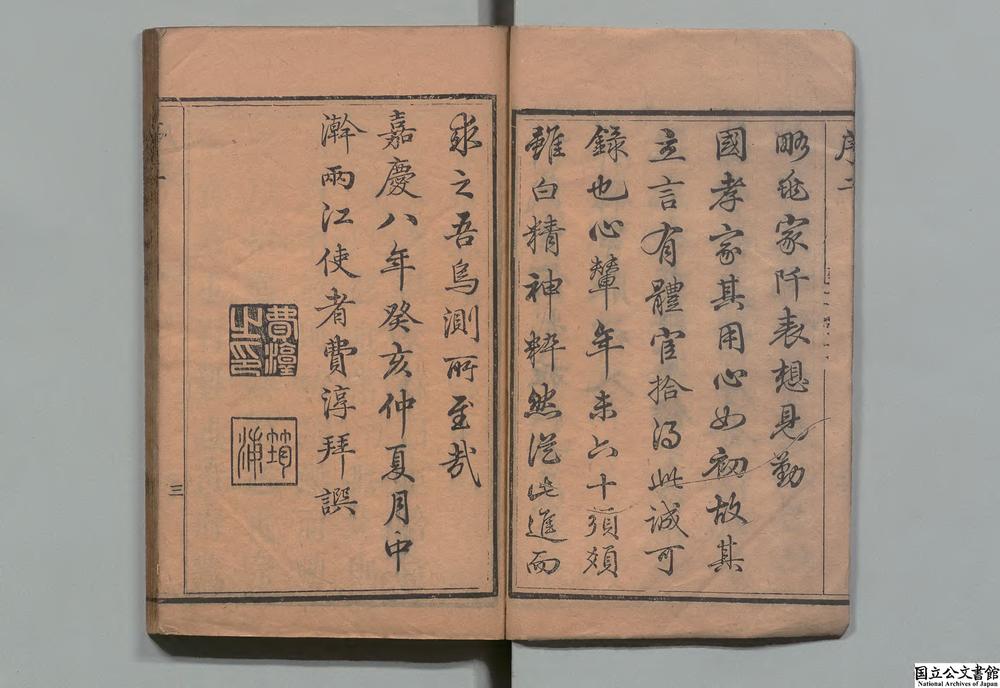 序二
略 家阡表想見勤
國孝家其用心如初故其
立言有體官拾得此誠可
錄也心輦年未六十須頰
雖白精神粹然從此進而
求之吾烏測所至哉
嘉慶八年癸亥仲夏月中
澣兩江使者費淳拜譔
費淳之印
筠浦
三
国立公文書館
National Archives of Japan